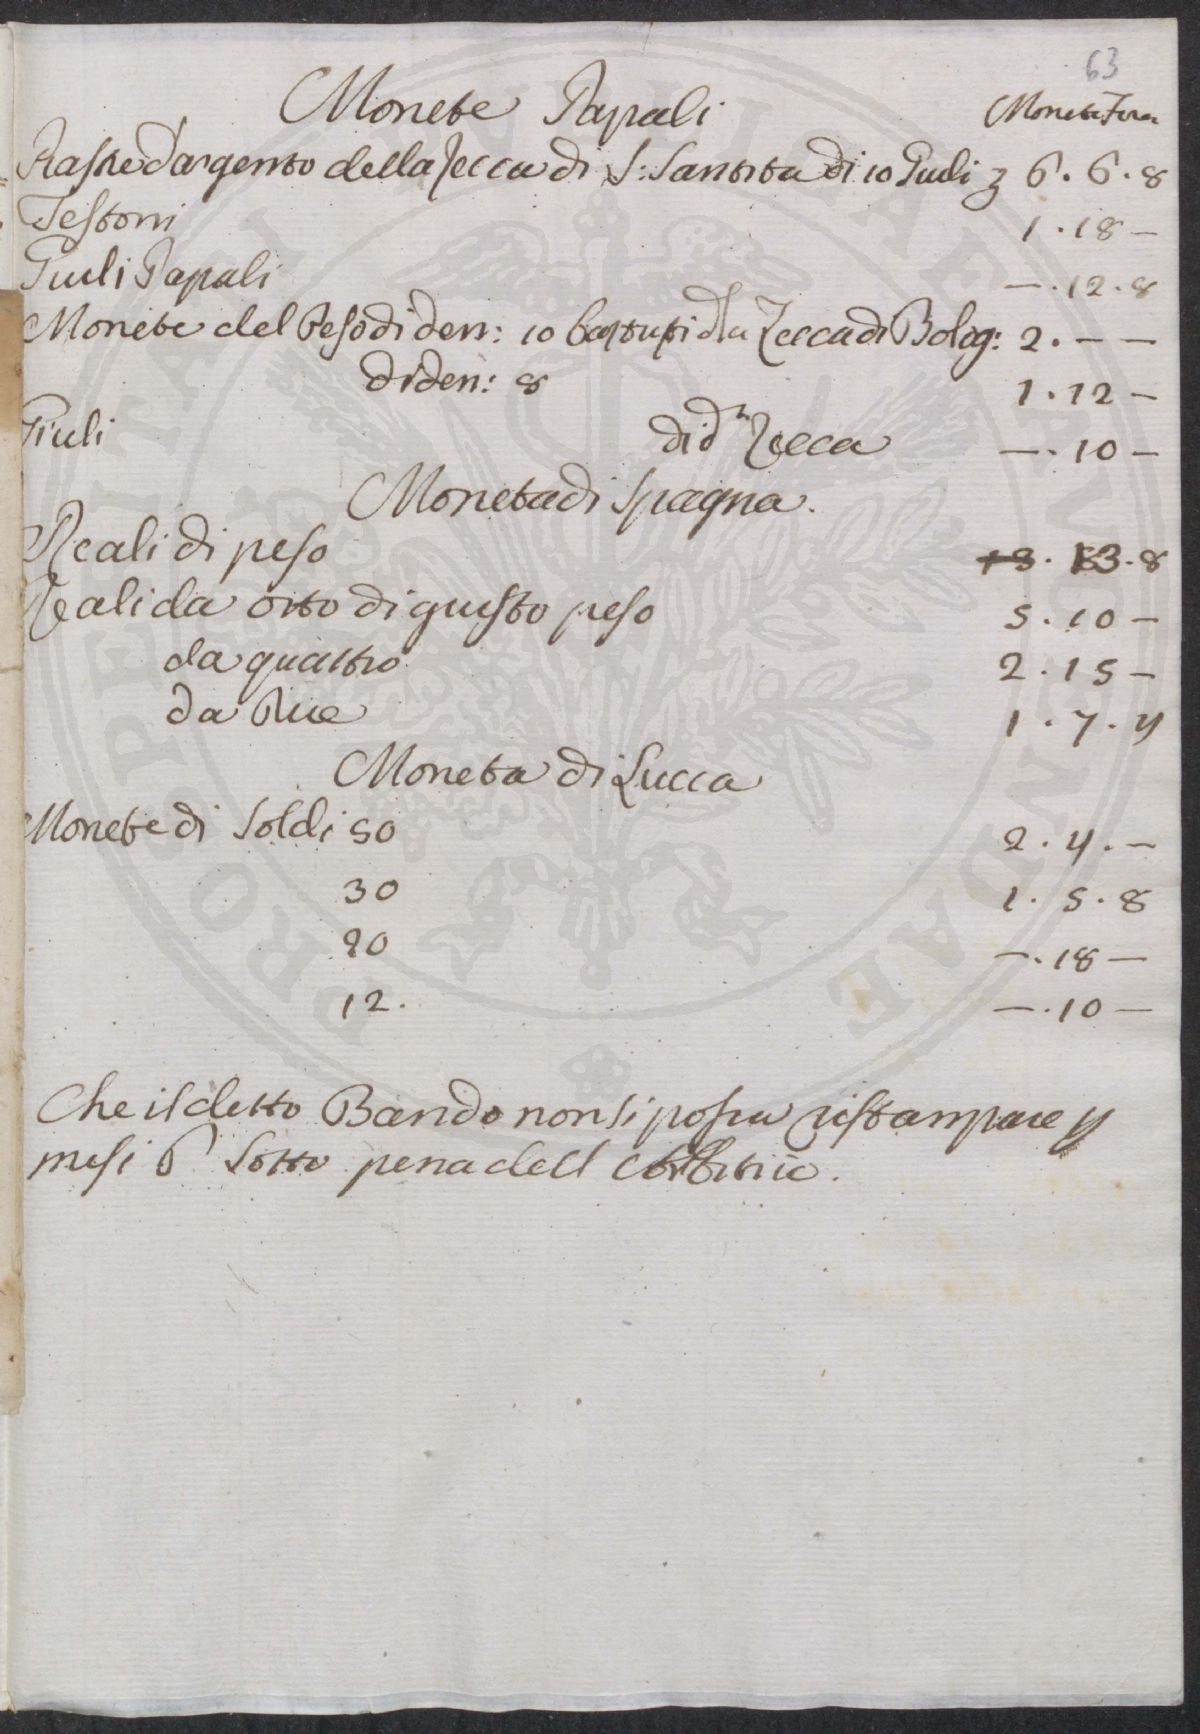 63
Monete Papali
Moneta Fera
Piastre d'argento della Zecca di S: Santita di 10 Giuli 6. 6. 8
Testoni 1. 18 —
Giuli Papali —. 12. 8
Monete del Peso di den: 10 battuti d'la Zecca di Bolog: 2. — —
di den: 8 1. 12 —
Giuli di d.ª Zecca —. 10 —
Moneta di Spagna.
Reali di peso 13. 8
Reali da otto di giusto peso 5. 10 —
da quattro 2. 15 —
da Due 1. 7. 4
Moneta di Lucca
Monete di Soldi 50 2. 4. —
30 1. 5. 8
20 —. 18 —
12. —. 10 —
Che il detto Bando non si possa ristampare p
mesi 6 sotto pena dell
PROSPERITATI